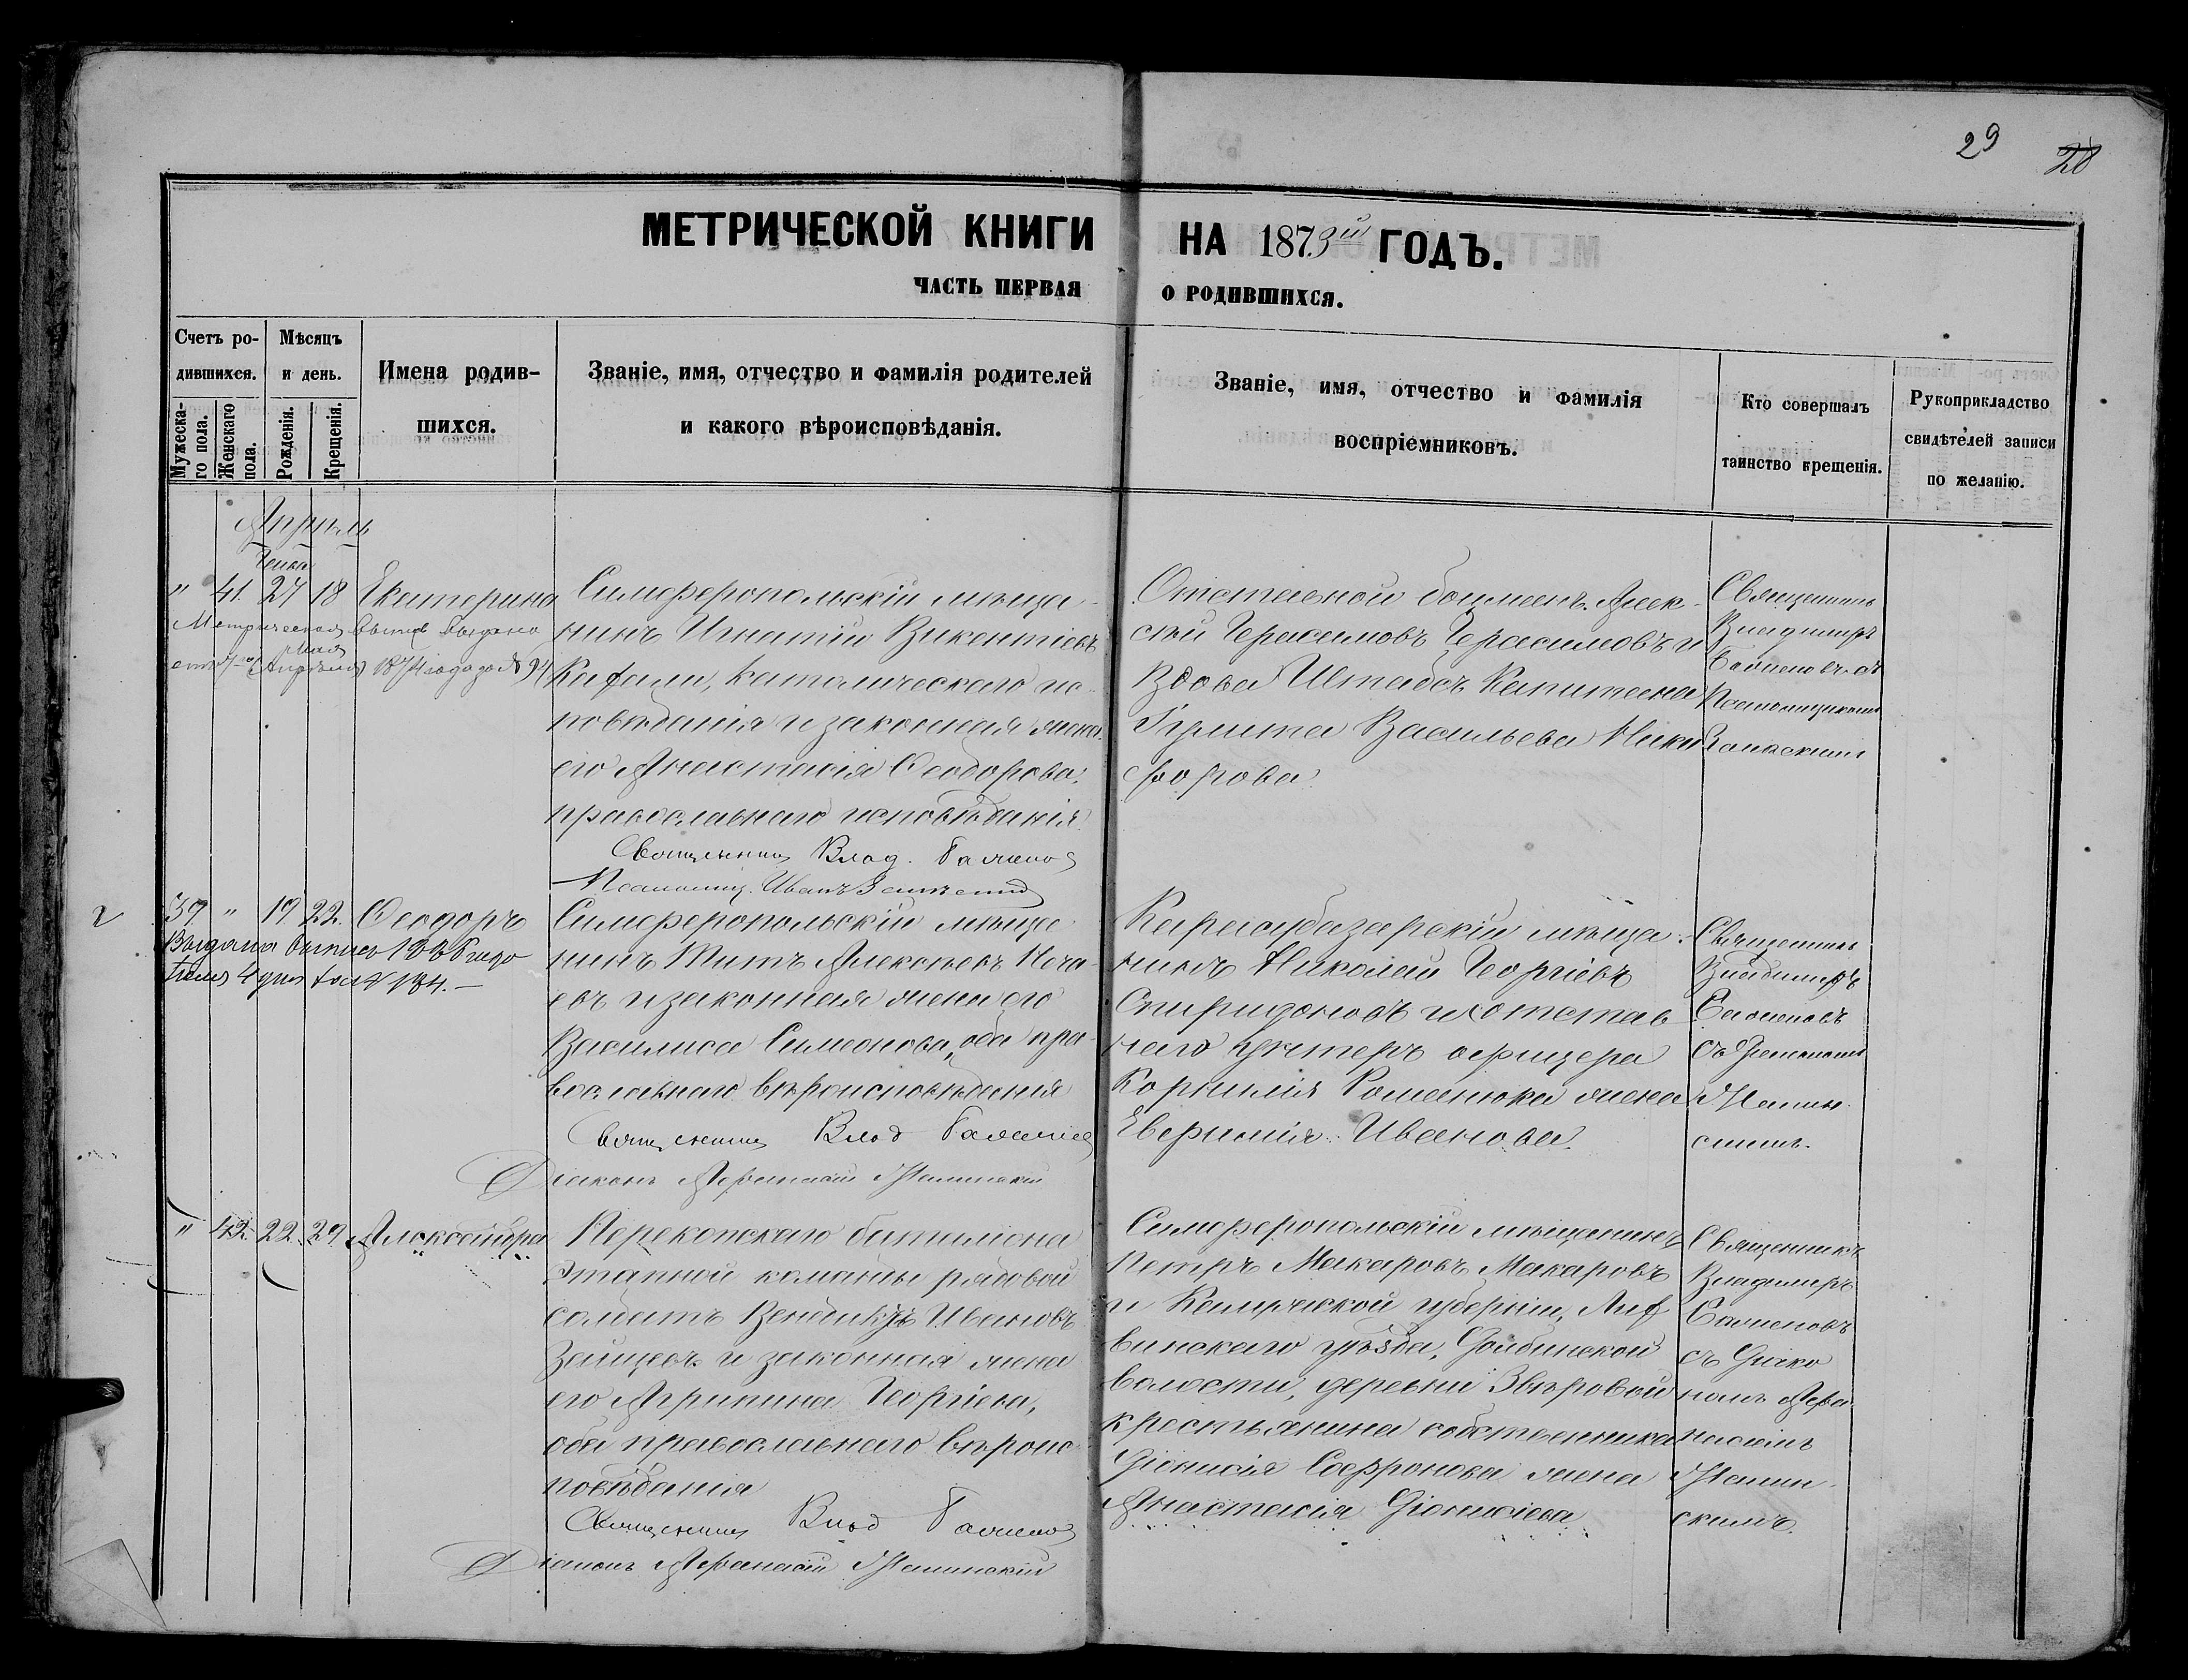 29 28
МЕТРИЧЕСКОЙ КНИГИ НА 1873ій ГОДЪ.
ЧАСТЬ ПЕРВАЯ О РОДИВШИХСЯ.
Счетъ ро-
дившихся.
Мужеска-
го пола.
Женскаго
пола.
Мѣсяцъ
и день.
Рожденія.
Крещенія.
Имена родив-
шихся.
Званіе, имя, отчество и фамилія родителей
и какого вѣроисповѣданія.
Званіе, имя, отчество и фамилія
воспріемниковъ.
Кто совершалъ
таинство крещенія.
Рукоприкладство
свидѣтелей записи
по желанію.
Апрѣль
" 41. 27 18 Екатерина
Метрическая выпись выдана
1874 года за № 94
Симферопольскій мѣща-
нинъ Игнатій Викентіевъ
католическаго ис-
повѣданія и законная жена
его Анастасія Ѳеодорова,
православнаго исповѣданія.
Священникъ Влад. Баженовъ
Псаломщ. Иванъ
Отставной боцманъ Алек-
сѣй Герасимовъ Герасимовъ и
вдова Штабсъ Капитана
Васильева Ники-
форова.
Священникъ
Владиміръ
Баженовъ съ
Псаломщикомъ
39 " 19 22. Ѳеодоръ
Выдана выпись 1886 года
4 дня за № 184. –
Симферопольскій мѣща-
нинъ Титъ Алексѣевъ Неча-
евъ и законная жена его
Василиса Симеонова, оба пра-
вославнаго вѣроисповѣданія
Священникъ Влад Баженовъ
Діаконъ Аѳанасій
Карасубазарскій мѣща-
нинъ Николай Георгіевъ
Спиридоновъ и отстав-
наго унтеръ офицера
Корнилія Романюка жена
Евфимія Иванова.
Священникъ
Владиміръ
Баженовъ
съ Діакономъ
" 42. 22. 29. Александра
Перекопскаго баталіона
этапной команды рядовой
солдатъ Венедиктъ Ивановъ
Зайцевъ и законная жена
его Агрипина Георгіева,
оба православнаго вѣроис-
повѣданія
Священникъ Влад Баженовъ
Діаконъ Аѳанасій
Симферопольскій мѣщанинъ
Петръ Макаровъ Макаровъ
и Калужской губерніи, Лих-
винскаго уѣзда,
волости, деревни Звѣровой
крестьянина собственника
Діонисія Софронова жена
Анастасія Діонисіева
Священникъ
Владиміръ
Баженовъ
съ Діако-
номъ Аѳа-
насіемъ